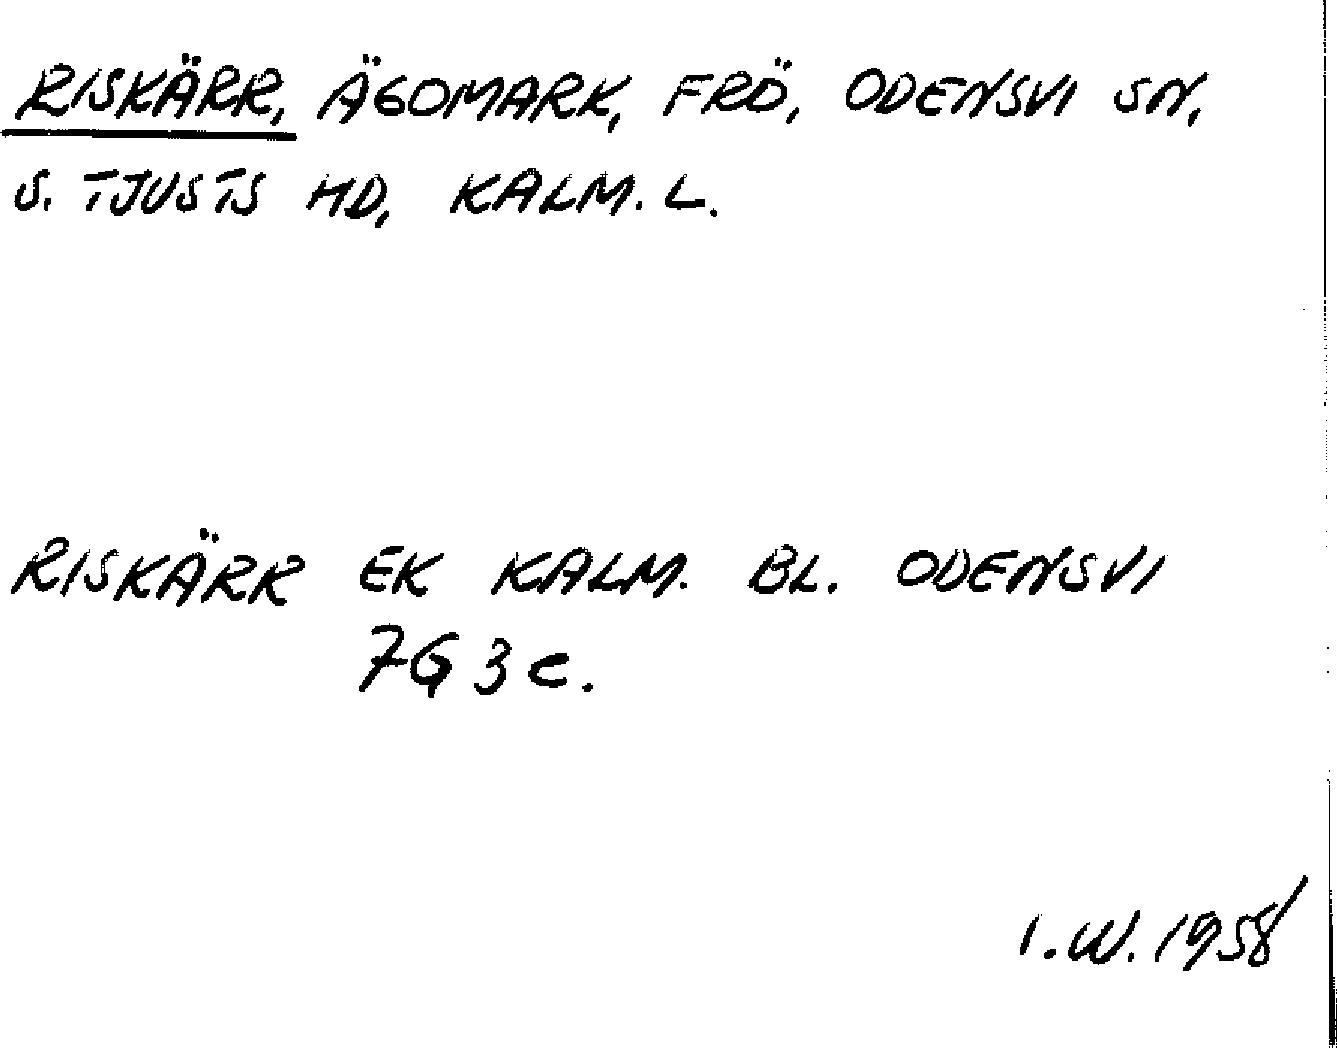 RISKÄRR, ÄGOMARK, FRÖ, ODENSVI SN,
S. TJUSTS HD, KALM. L.
RISKÄRR EK KALM. BL. ODENSVI
7G 3c.
I.W. 1958